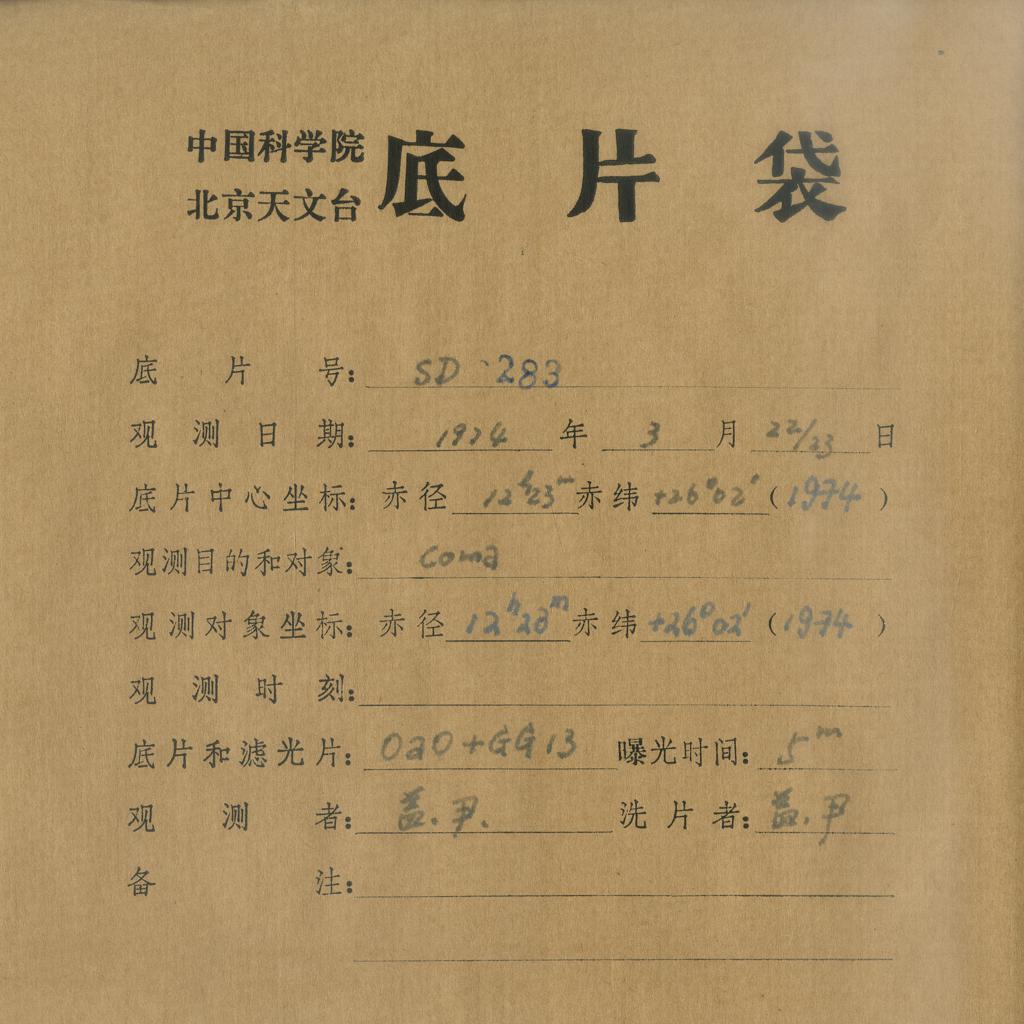 中国科学院
北京天文台
底片袋
底片号： SD 283
观测日期： 1974 年 3 月 22/23 日
底片中心坐标：赤径 12h23m 赤纬 +26°02′ (1974)
观测目的和对象： coma
观测对象坐标：赤径 12h23m 赤纬 +26°02′ (1974)
观测时刻：
底片和滤光片： OaO+GG13 曝光时间： 5m
观测者： 益.尹. 洗片者： 益.尹
备注：